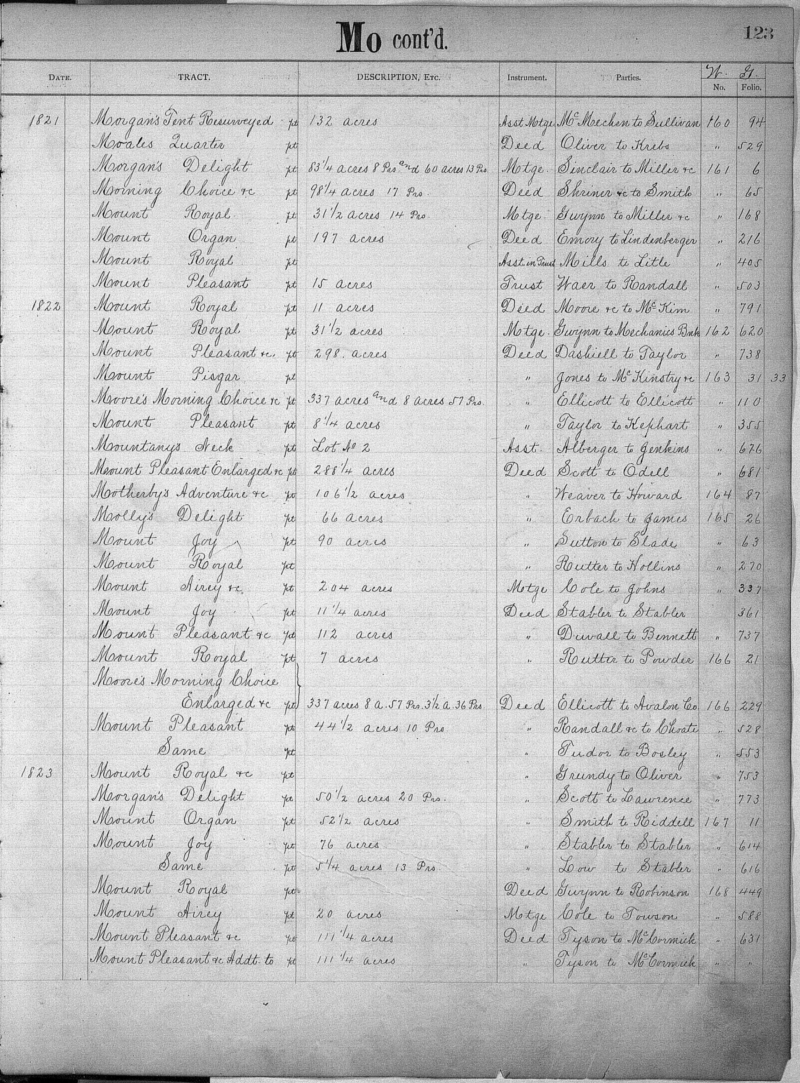 Mo cont'd.
123
DATE. TRACT. DESCRIPTION, ETC. Instrument. Parties. W. No. G. Folio.
1821 Morgan's Tent Resurveyed pt 132 acres Asst Mtge McMechen to Sullivan 160 94
Moales Quarter pt Deed Oliver to Krebs " 529
Morgan's Delight pt 83 1/4 acres 8 Prs and 60 acres 13 Prs Mtge Sinclair to Miller &c 161 6
Morning Choice &c pt 98 1/4 acres 17 Prs Deed Shriner &c to Smith " 65
Mount Royal pt 31 1/2 acres 14 Prs Mtge Gwynn to Miller &c " 168
Mount Organ pt 197 acres Deed Emory to Lindenberger " 216
Mount Royal pt Asst in Trust Mills to Litle " 405
Mount Pleasant pt 15 acres Trust Waer to Randall " 503
1822 Mount Royal pt 11 acres Deed Moore &c to McKim " 791
Mount Royal pt 31 1/2 acres Mtge Gwynn to Mechanics Bnk 162 620
Mount Pleasant &c. pt 298. acres Deed Dashiell to Taylor " 738
Mount Pisgar pt " Jones to McKinstry &c 163 31 33
Moore's Morning Choice &c pt 337 acres and 8 acres 57 Prs. " Ellicott to Ellicott " 110
Mount Pleasant pt 8 1/4 acres " Taylor to Kephart " 355
Mountany's Neck pt Lot No 2 Asst. Alberger to Jenkins " 676
Mount Pleasant Enlarged &c pt 288 1/4 acres Deed Scott to Odell " 681
Motherby's Adventure &c pt 106 1/2 acres " Weaver to Howard 164 87
Molly's Delight pt 66 acres " Erbach to James 165 26
Mount Joy pt 90 acres " Sutton to Slade " 63
Mount Royal pt " Rutter to Hollins " 270
Mount Airey &c. pt 204 acres Mtge Cole to Johns " 337
Mount Joy pt 11 1/4 acres Deed Stabler to Stabler 361
Mount Pleasant &c pt 112 acres " Duvall to Bennett " 737
Mount Royal pt 7 acres " Rutter to Powder 166 21
Moore's Morning Choice
Enlarged &c pt 337 acres 8 a. 57 Prs. 3 1/2 a 36 Prs Deed Ellicott to Avalon Co 166 229
Mount Pleasant pt 44 1/2 acres 10 Prs. " Randall &c to Choate " 528
Same pt " Tudor to Bosley " 553
1823 Mount Royal &c pt " Grundy to Oliver " 753
Morgan's Delight pt 50 1/2 acres 20 Prs. " Scott to Lawrence " 773
Mount Organ pt 52 1/2 acres " Smith to Riddell 167 11
Mount Joy pt 76 acres " Stabler to Stabler " 614
Same pt 5 1/4 acres 13 Prs " Low to Stabler " 616
Mount Royal pt Deed Gwynn to Robinson 168 449
Mount Airey pt 20 acres Mtge Cole to Towson " 588
Mount Pleasant &c pt 111 1/4 acres Deed Tyson to McCormick " 631
Mount Pleasant &c Addt. to pt 111 1/4 acres " Tyson to McCormick " "